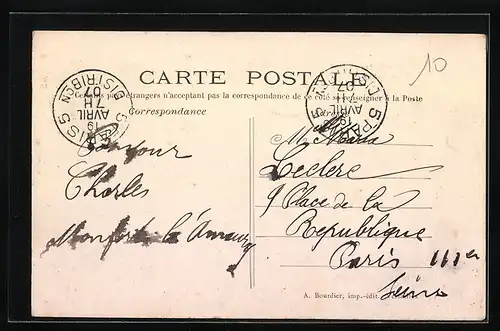 CARTE POSTALE
10
pays étrangers n'acceptant pas la correspondance de ce côté se renseigner à la Poste
Correspondance
PARIS 5 DISTRIBON
7 H
19 AVRIL 07
PARIS 5 DISTRIBON
7 H
19 AVRIL 07
Bonjour
Charles
Montfort l'Amaury
Leclerc
9 Place de la
République
Paris
Seine
A. Bourdier, imp.-édit.